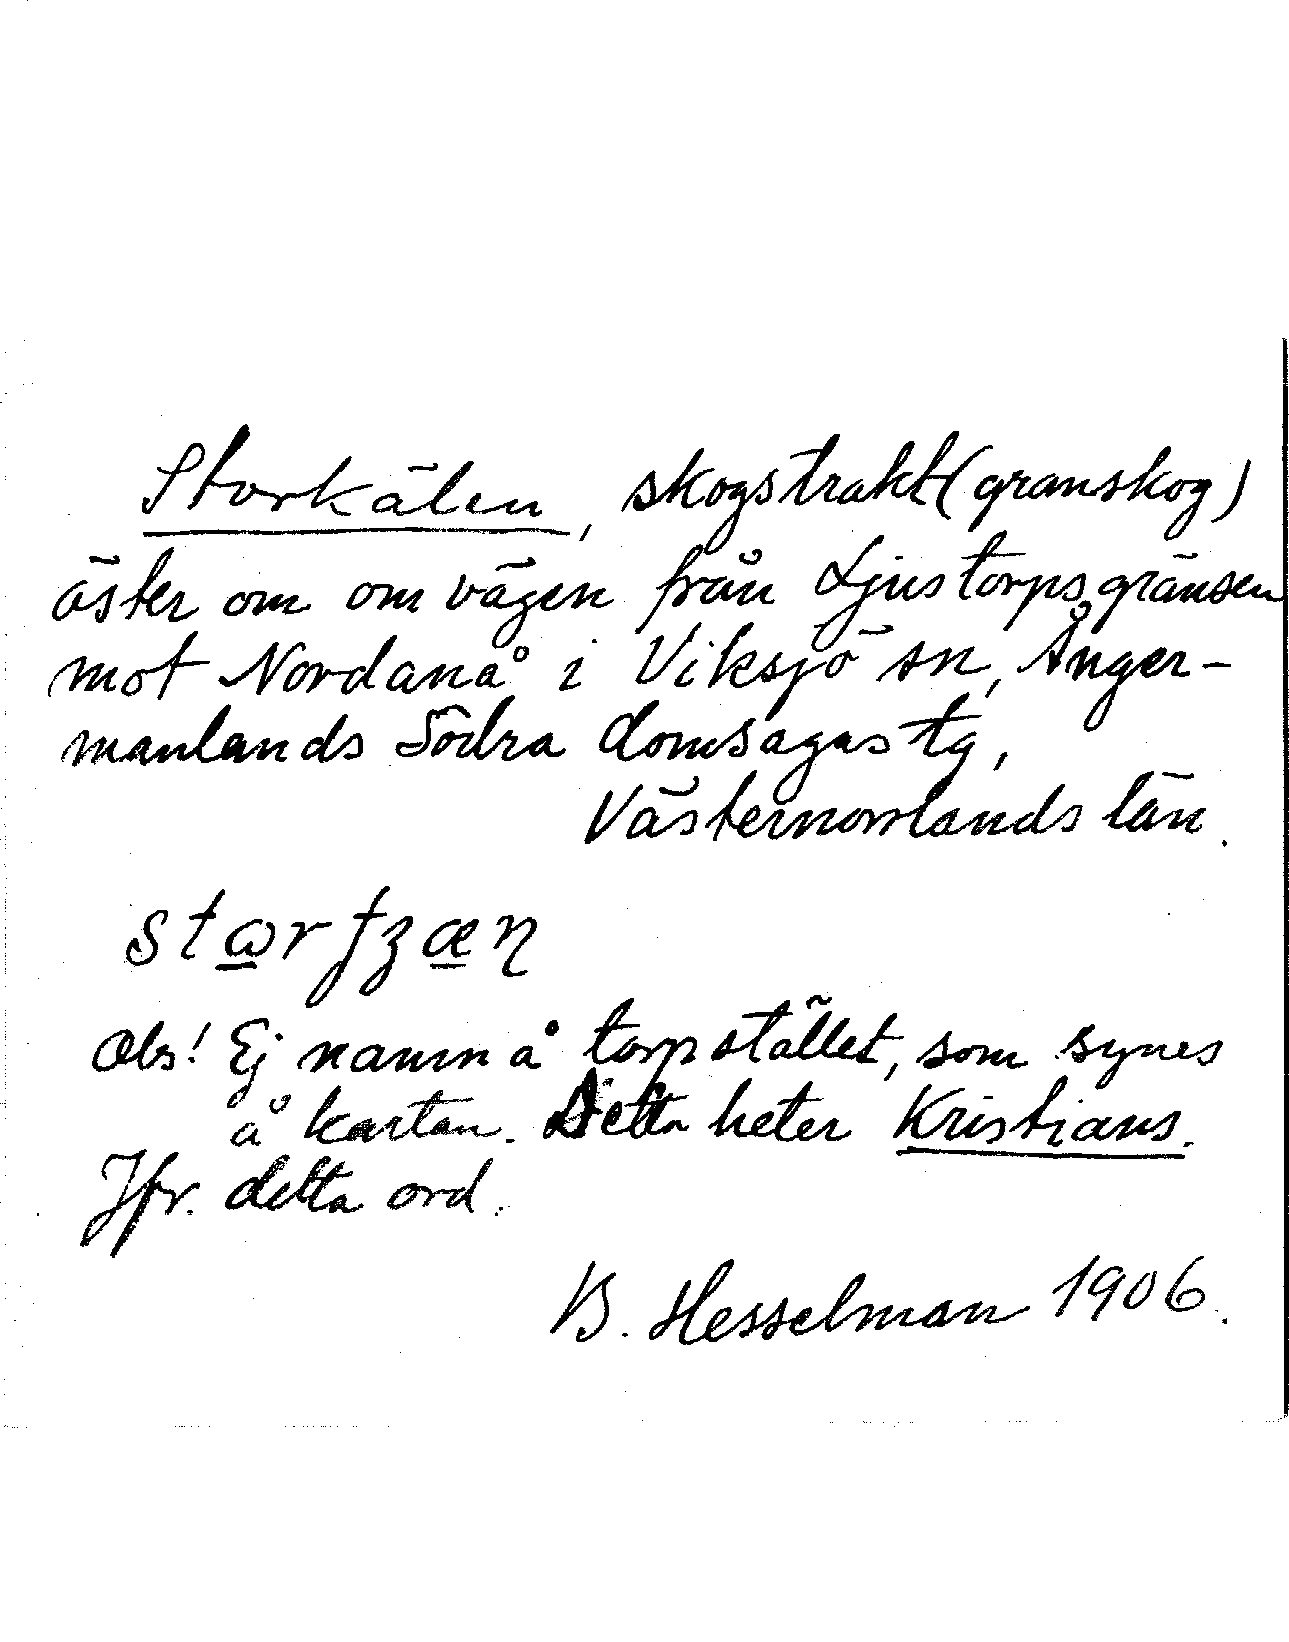 Storkälen, skogstrakt (granskog)
öster om om vägen från Ljustorpsgränsen
mot Nordanå i Viksjö sn, Ånger-
manlands Södra domsagas tg,
Västernorrlands län.
Obs! Ej namn å torpstället, som synes
å kartan. Detta heter Kristians.
Jfr. detta ord.
B. Hesselman 1906.